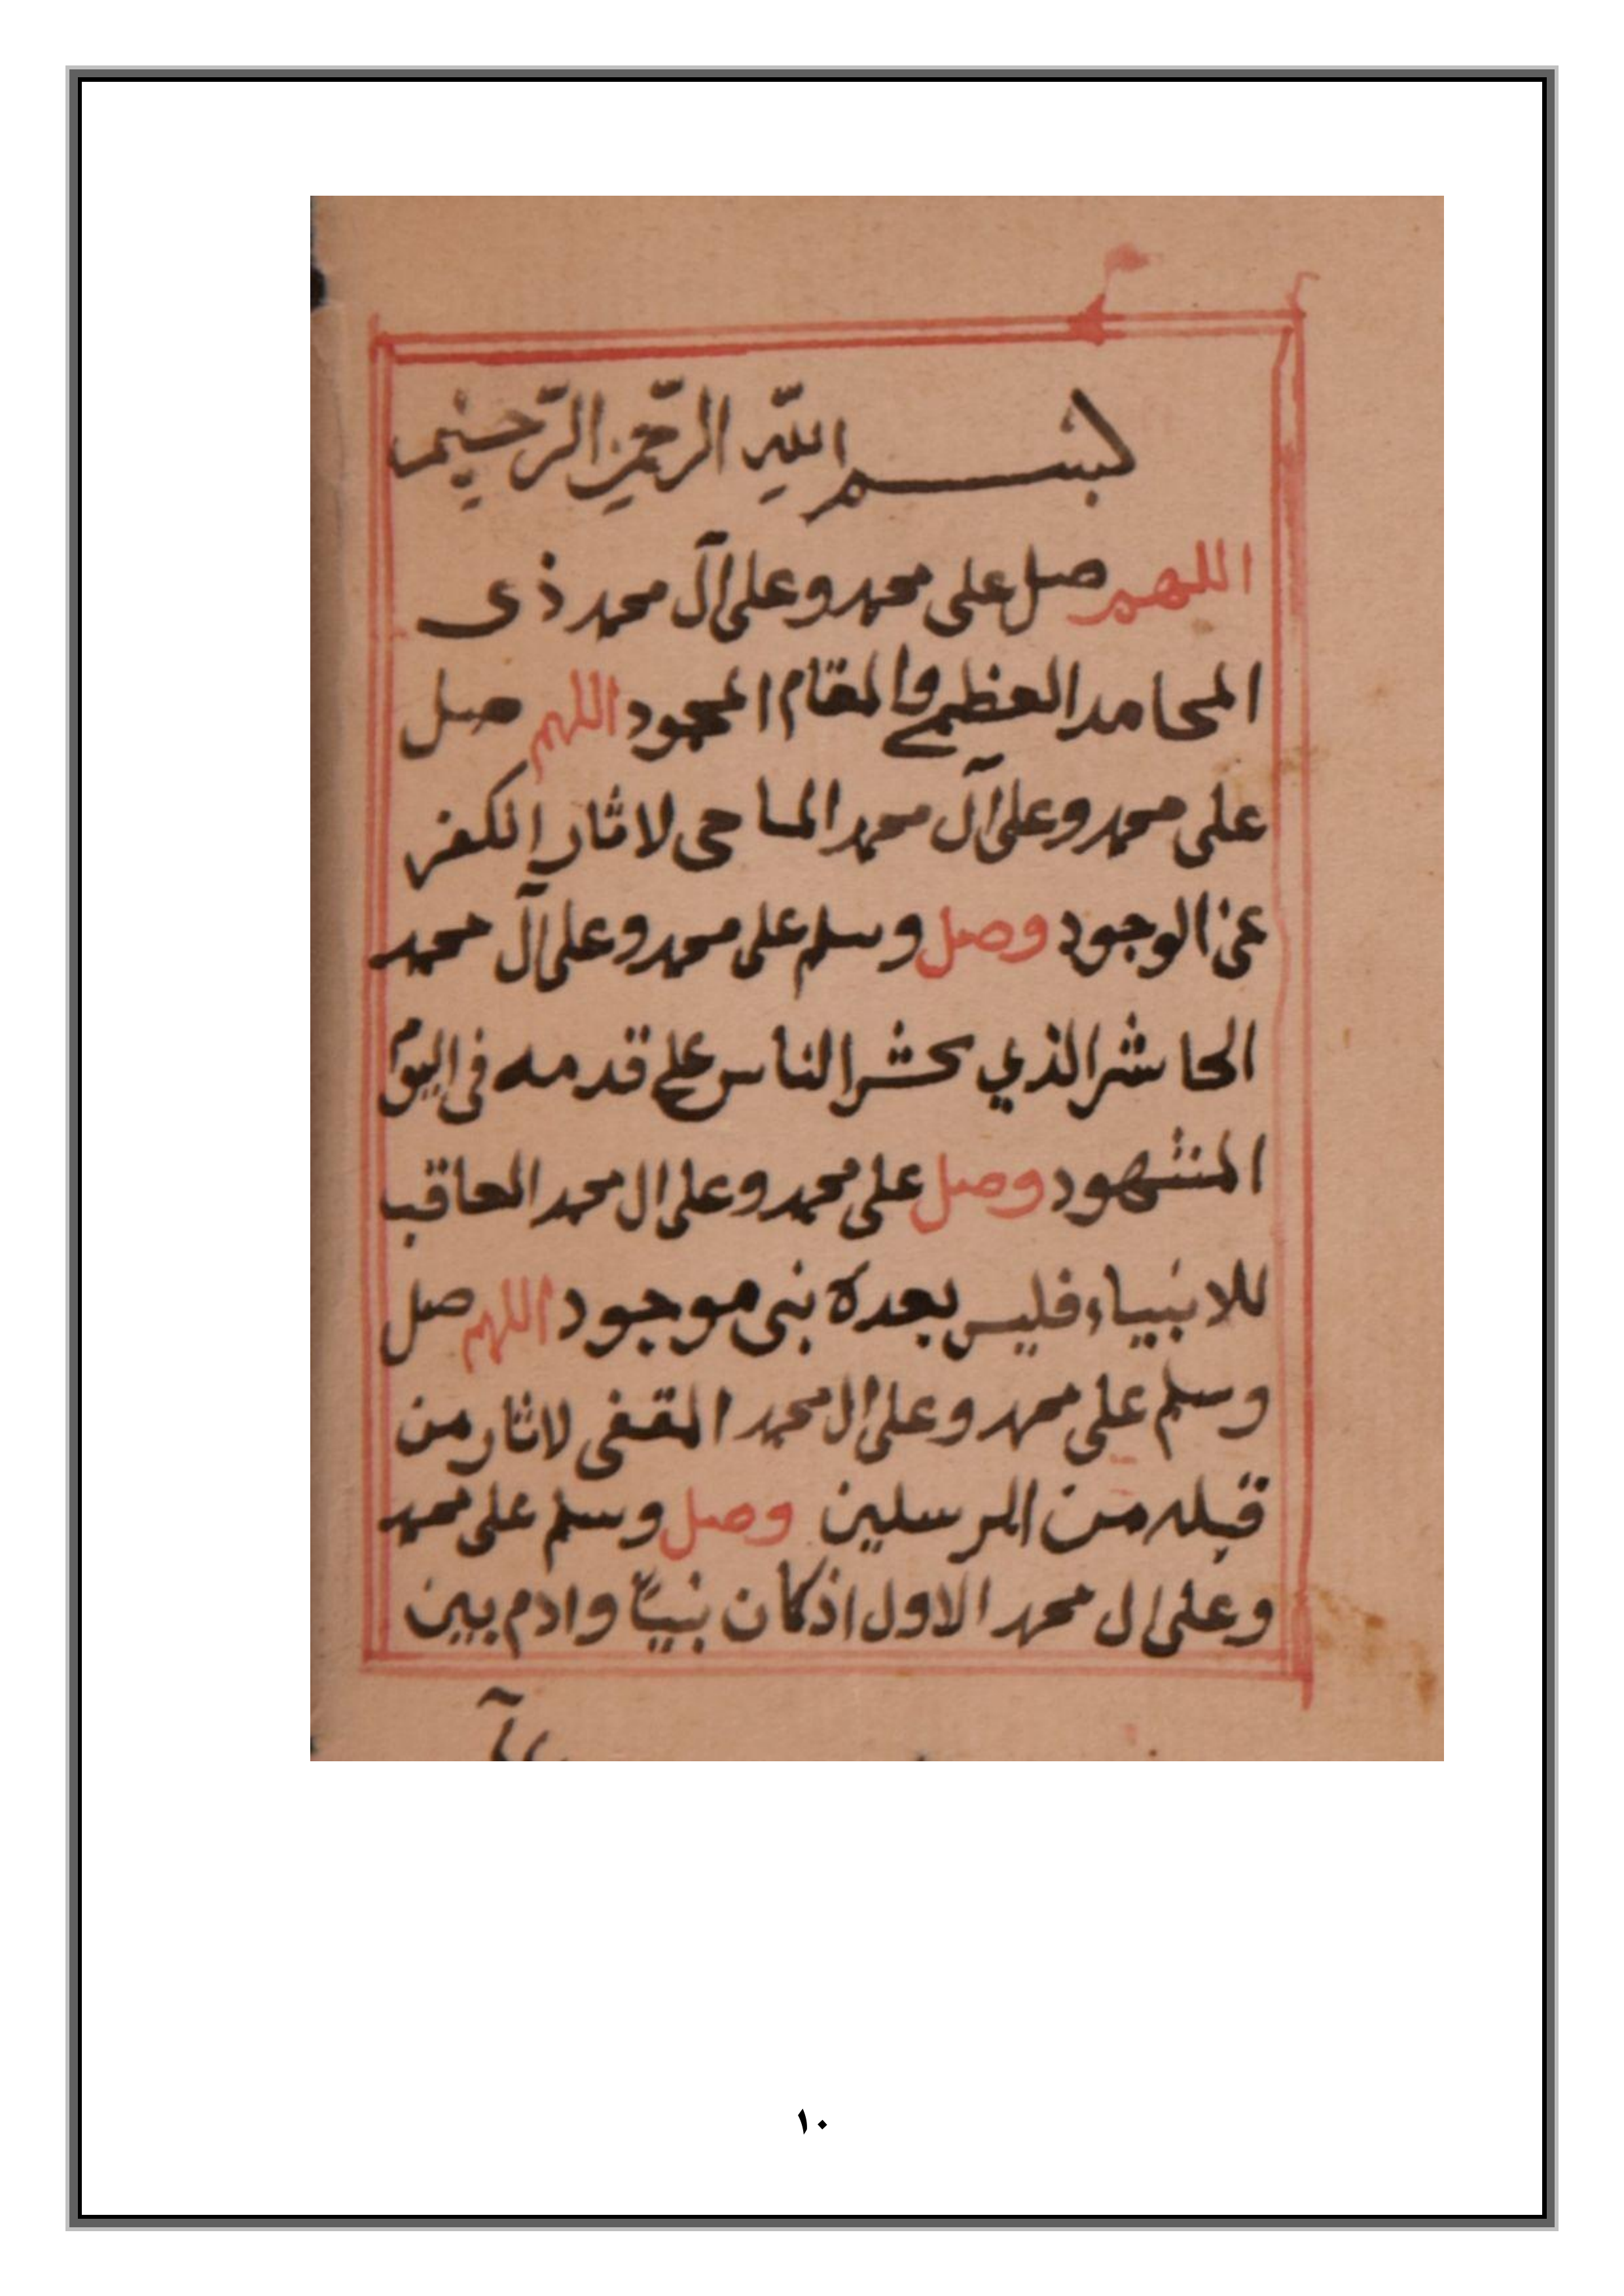 بسم اللهِ الرّحمنِ الرّحيم
اللهم صل على محمد وعلى آل محمد ذى
المحامد العظمى والمقام المحمود اللهم صل
على محمد وعلى آل محمد الماحى لاثار الكفر
عن الوجود وصل وسلم على محمد وعلى آل محمد
الحاشر الذي يحشر الناس على قدمه فى اليوم
المشهود وصل على محمد وعلى ال محمد العاقب
للانبياء فليس بعده نبى موجود اللهم صل
وسلم على محمد وعلى ال محمد المقفى لاثار من
قبله من المرسلين وصل وسلم على محمد
وعلى ال محمد الاول اذ كان نبيّا وادم بين
١٠